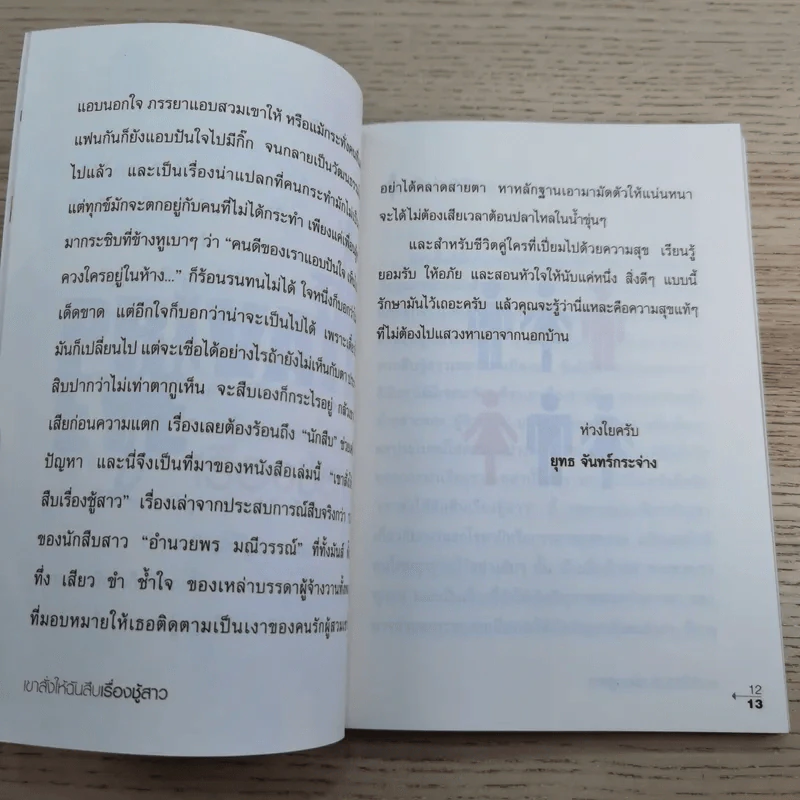 แอบนอกใจ ภรรยาแอบสวมเขาให้ หรือแม้กระทั่งคน
แฟนกันก็ยังแอบปันใจไปมีกิ๊ก จนกลายเป็นวัฒนธรรม
ไปแล้ว และเป็นเรื่องน่าแปลกที่คนกระทำมักไม่
แต่ทุกข์มักจะตกอยู่กับคนที่ไม่ได้กระทำ เพียงแค่เพื่อน
มากระซิบที่ข้างหูเบาๆ ว่า “คนดีของเราแอบปันใจ
ควงใครอยู่ในห้าง...” ก็ร้อนรนทนไม่ได้ ใจหนึ่งก็บอกว่า
เด็ดขาด แต่อีกใจก็บอกว่าน่าจะเป็นไปได้ เพราะ
มันก็เปลี่ยนไป แต่จะเชื่อได้อย่างไรถ้ายังไม่เห็นกับตา
สิบปากว่าไม่เท่าตากูเห็น จะสืบเองก็กระไรอยู่
เสียก่อนความแตก เรื่องเลยต้องร้อนถึง “นักสืบ”
ปัญหา และนี่จึงเป็นที่มาของหนังสือเล่มนี้
สืบเรื่องชู้สาว” เรื่องเล่าจากประสบการณ์สืบจริงกว่า
ของนักสืบสาว “อำนวยพร มณีวรรณ์” ที่ทั้งมันส์
ทึ่ง เสียว ขำ ช้ำใจ ของเหล่าบรรดาผู้จ้างวาน
ที่มอบหมายให้เธอติดตามเป็นเงาของคนรักผู้
เขาสั่งให้ฉันสืบเรื่องชู้สาว
อย่าได้คลาดสายตา หาหลักฐานเอามามัดตัวให้แน่นหนา
จะได้ไม่ต้องเสียเวลาต้อนปลาไหลในน้ำขุ่นๆ
และสำหรับชีวิตคู่ใครที่เปี่ยมไปด้วยความสุข เรียนรู้
ยอมรับ ให้อภัย และสอนหัวใจให้นับแค่หนึ่ง สิ่งดีๆ แบบนี้
รักษามันไว้เถอะครับ แล้วคุณจะรู้ว่านี่แหละคือความสุขแท้ๆ
ที่ไม่ต้องไปแสวงหาเอาจากนอกบ้าน
ห่วงใยครับ
ยุทธ จันทร์กระจ่าง
12
13